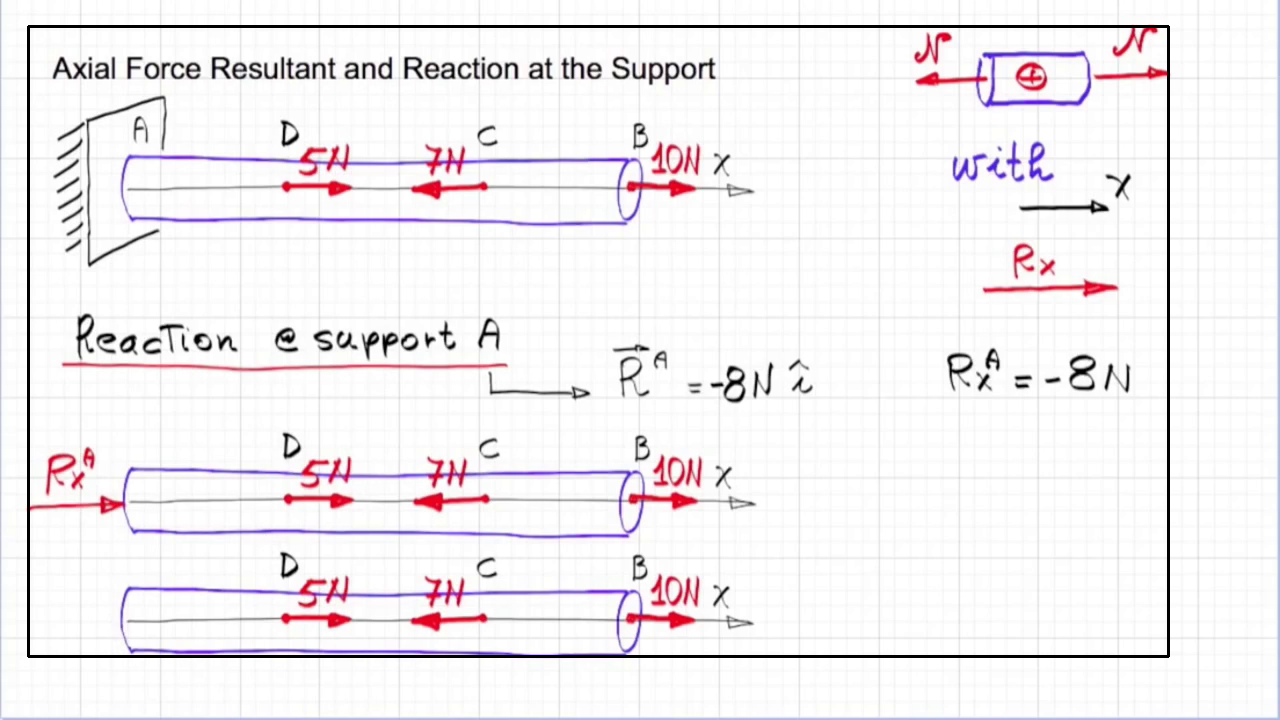 Axial Force Resultant and Reaction at the Support
N N
+
A D 5N 7N C B 10N x
with
x
Rx
Reaction @ support A
R⃗ᴬ = -8N î
Rxᴬ = -8N
Rxᴬ D 5N 7N C B 10N x
D 5N 7N C B 10N x